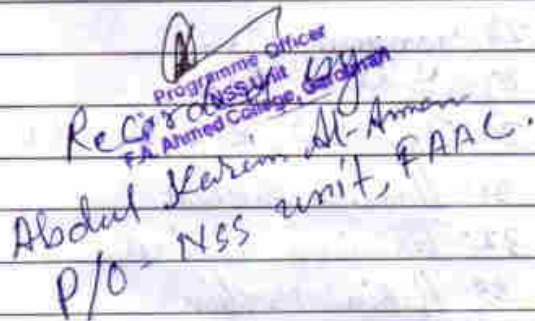 Programme Officer
NSS Unit
F.A. Ahmed College, Garoimari
Recorded by
Abdul Karim Al-Aman
P/O- NSS unit, FAAC.